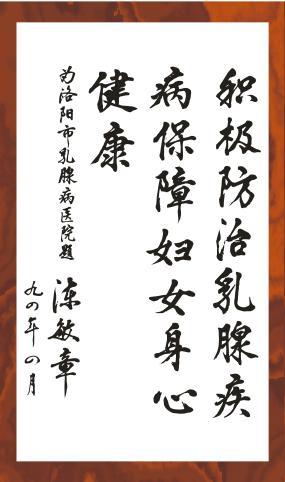 积极防治乳腺疾
病保障妇女身心
健康
为洛阳市乳腺病医院题
陈敏章
九四年四月